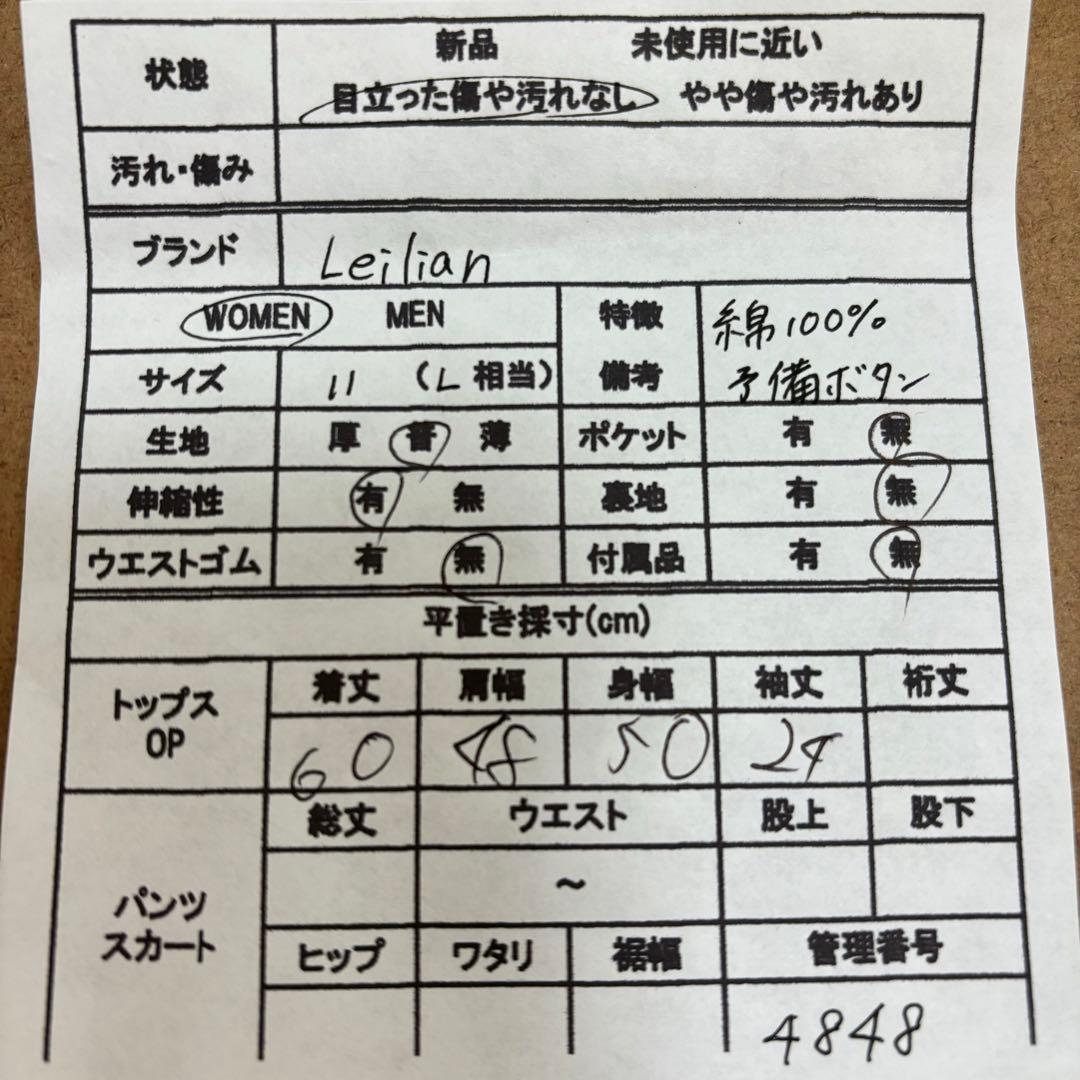 状態 新品 未使用に近い
目立った傷や汚れなし やや傷や汚れあり
汚れ・傷み
ブランド Leilian
WOMEN MEN 特徴 綿100%
サイズ 11 (L 相当) 備考 予備ボタン
生地 厚 普 薄 ポケット 有 無
伸縮性 有 無 裏地 有 無
ウエストゴム 有 無 付属品 有 無
平置き採寸(cm)
トップス OP 着丈 肩幅 身幅 袖丈 裄丈
60 48 50 24
パンツ スカート 総丈 ウエスト 股上 股下
~
ヒップ ワタリ 裾幅 管理番号
4848